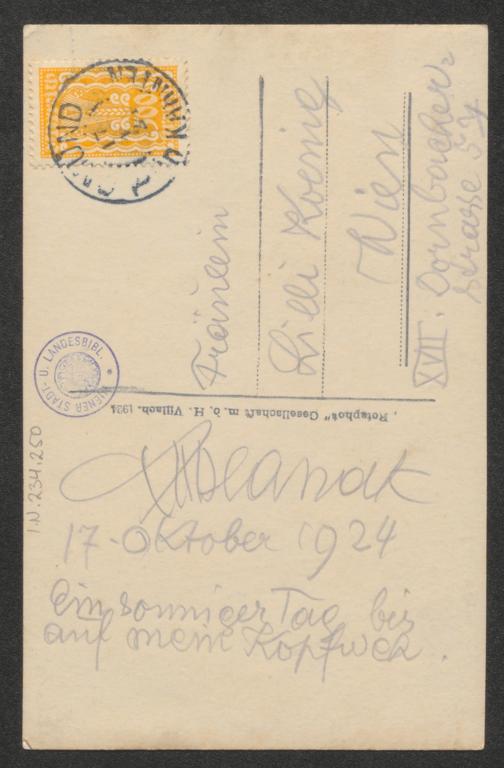 GMÜND
KÄRNTEN
Fräulein
Lilli Koenig
Wien
XVII. Dornbacher
strasse 57
WIENER STADT- U. LANDESBIBL.
„Rotophot" Gesellschaft m. b. H. Villach. 1924
I.N. 234.250
17. Oktober 1924
Ein sonniger Tag bis
auf mein Kopfweh.